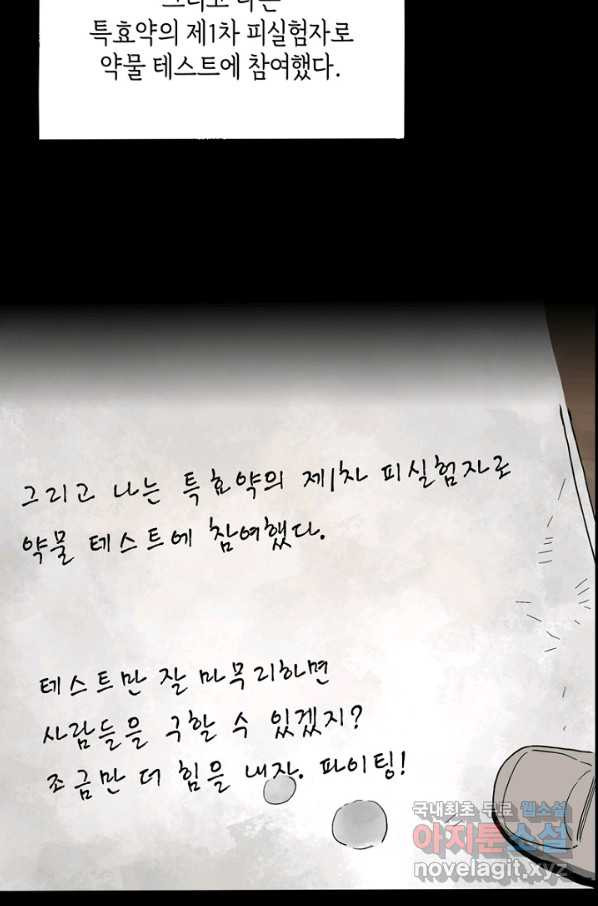 그리고 나는
특효약의 제1차 피실험자로
약물 테스트에 참여했다.
그리고 나는 특효약의 제1차 피실험자로
약물 테스트에 참여했다.
테스트만 잘 마무리하면
사람들을 구할 수 있겠지?
조금만 더 힘을 내자. 파이팅!
국내최초 무료 웹소설
아지툰소설
novelagit.xyz